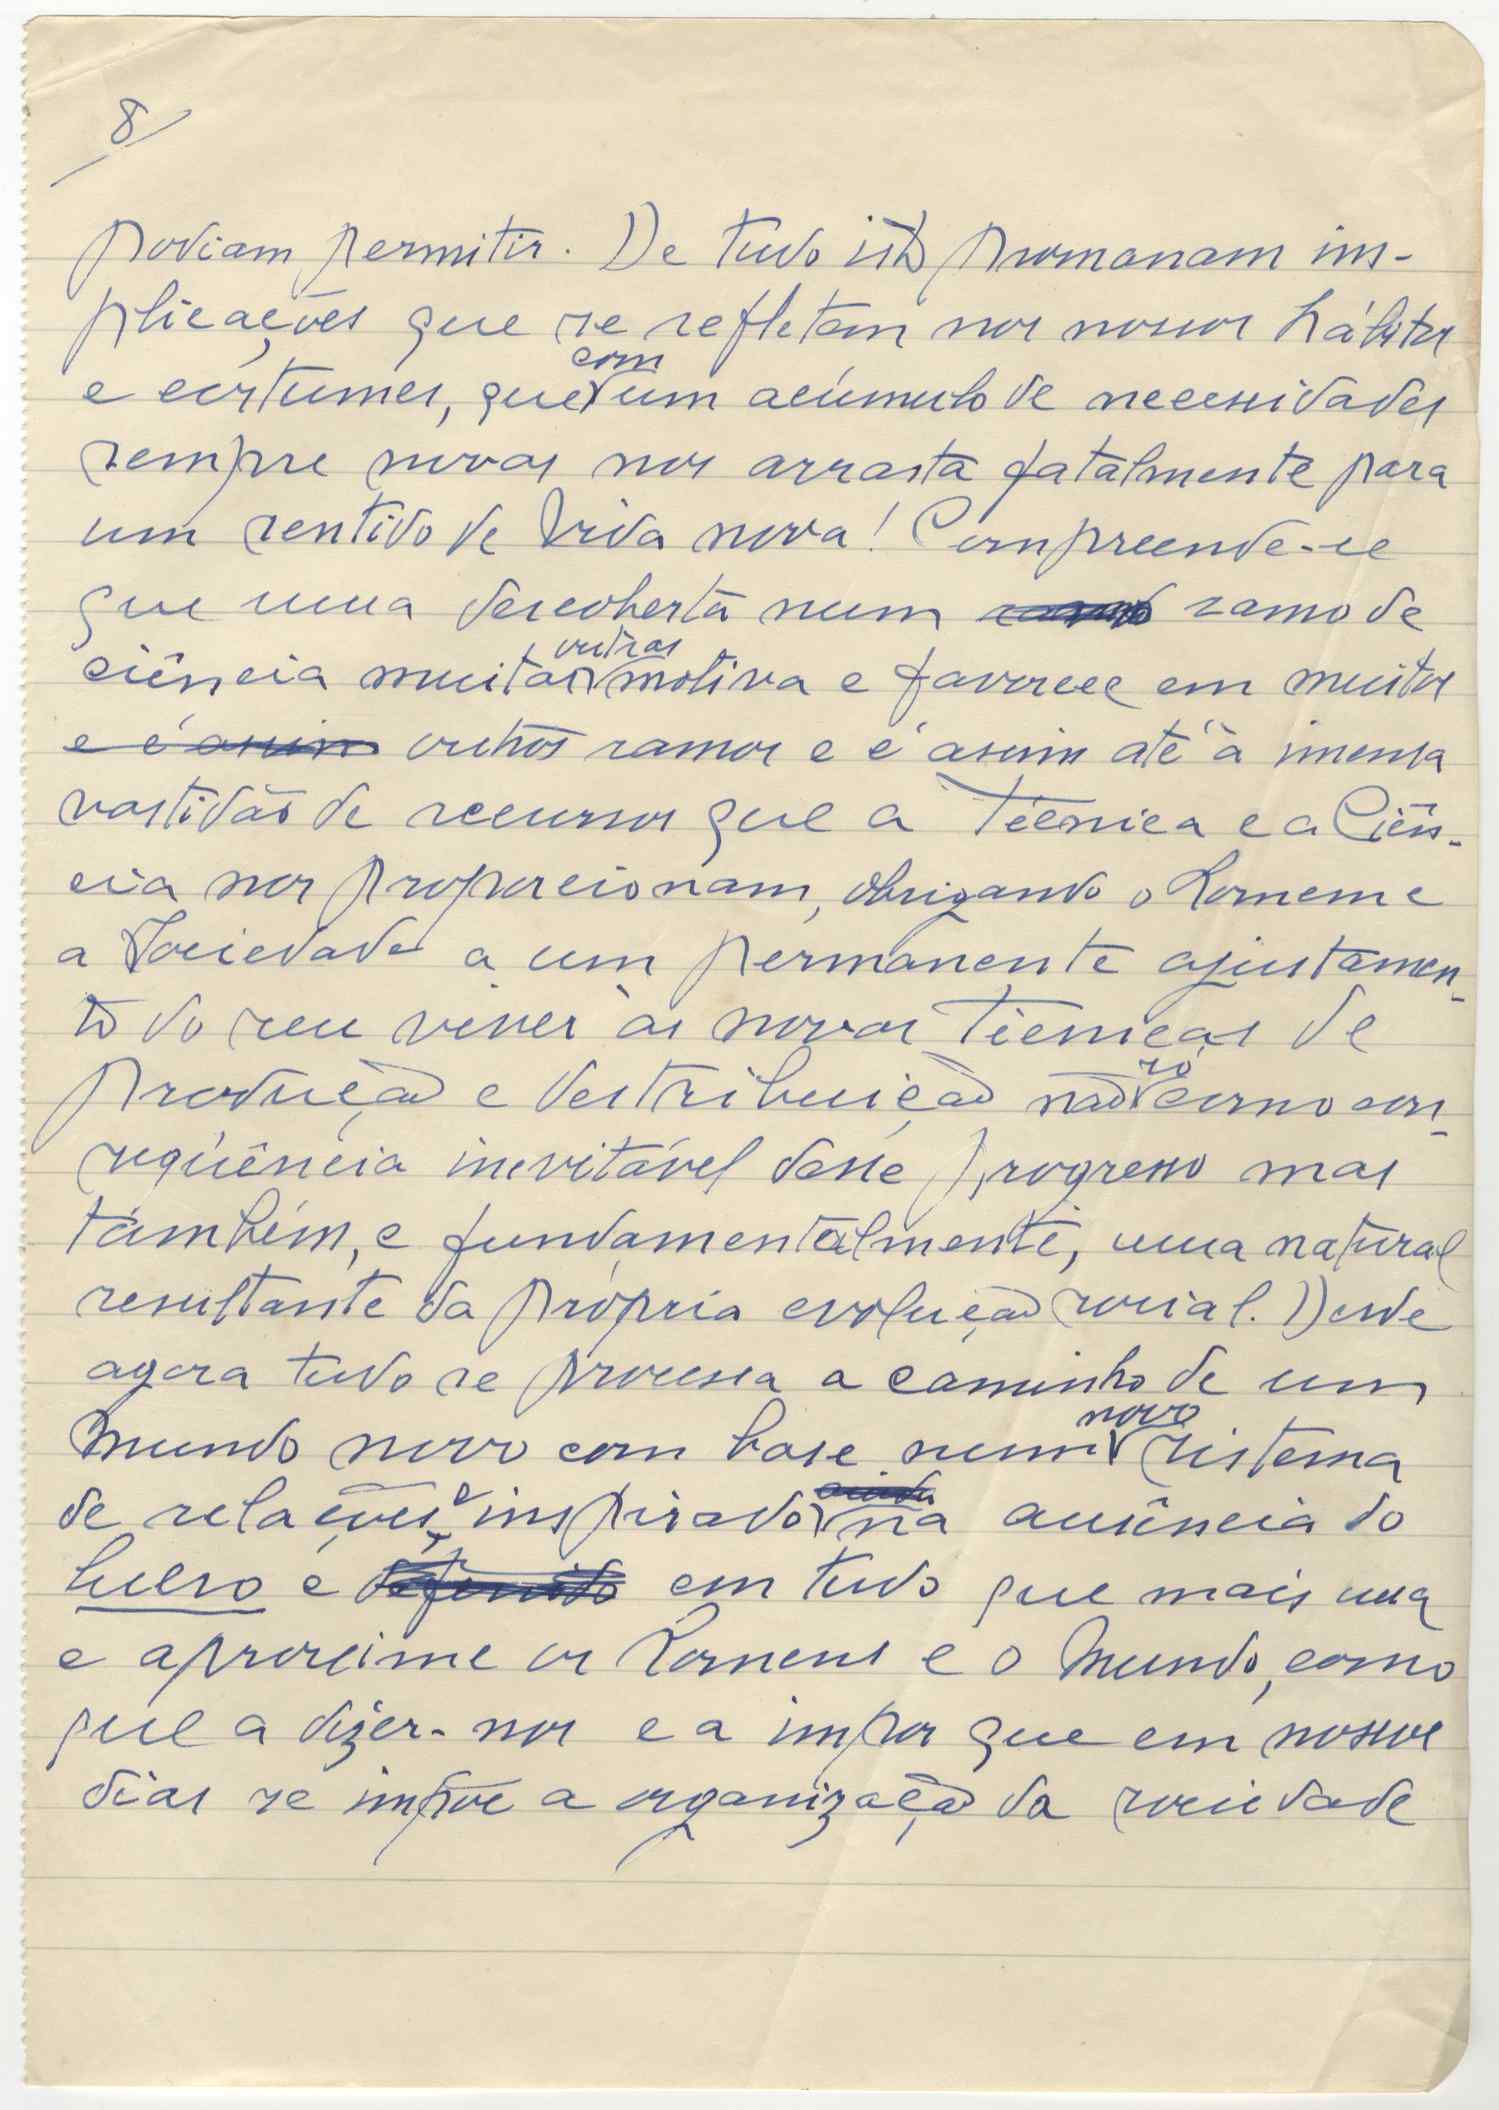 8/
podiam permitir. De tudo isto promanam im-
plicações que se refletem nos nossos hábitos
e costumes, que com um acúmulo de necessidades
sempre novas nos arrasta fatalmente para
um sentido de Vida nova! Compreende-se
que uma descoberta num ramo ramo de
ciência muitas outras motiva e favorece em muitos
e é assim outros ramos e é assim até à imensa
vastidão de recursos que a Técnica e a Ciên-
cia nos proporcionam, obrigando o homem e
a Sociedade a um permanente ajustamen-
to do seu viver às novas Técnicas de
produção e destribuição não só como con-
seqüência inevitável desse progresso mas
também, e fundamentalmente, uma natural
resultante da própria evolução social. Desde
agora tudo se processa a caminho de um
Mundo novo com base num novo sistema
de relações e inspirado na ausência do
lucro e definido em tudo que mais una
e aproxime os homens e o Mundo, como
que a dizer-nos e a impor que em nossos
dias se impõe a organização da sociedade